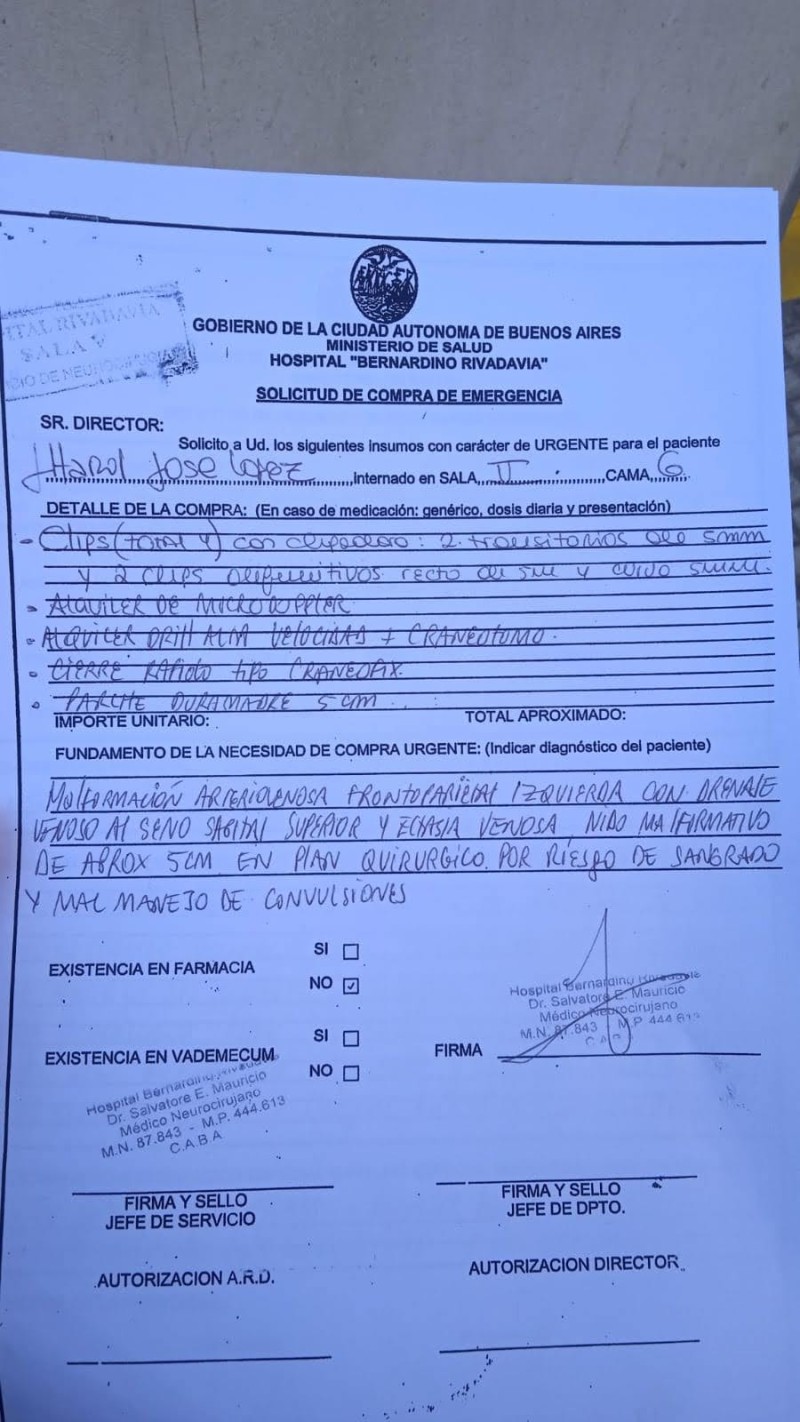 SALA V
GOBIERNO DE LA CIUDAD AUTONOMA DE BUENOS AIRES
MINISTERIO DE SALUD
HOSPITAL "BERNARDINO RIVADAVIA"
SOLICITUD DE COMPRA DE EMERGENCIA
SR. DIRECTOR:
Solicito a Ud. los siguientes insumos con carácter de URGENTE para el paciente
Jose Lopez, Internado en SALA II CAMA 6
DETALLE DE LA COMPRA: (En caso de medicación: genérico, dosis diaria y presentación)
- Clips (total 4) con clipadora: 2 transitorios de 5mm
y 2 clips definitivos recto de 5mm y curvo 5mm.
- Alquiler de Microdoppler
- Alquiler Drill Alta Velocidad + Craneotomo.
- Cierre Rápido tipo Craneofix.
- Parche Duramadre 5 cm.
IMPORTE UNITARIO:
TOTAL APROXIMADO:
FUNDAMENTO DE LA NECESIDAD DE COMPRA URGENTE: (Indicar diagnóstico del paciente)
MalFORMACIÓN ARTERIOVENOSA FRONTOPARIETAL IZQUIERDA CON DRENAJE
VENOSO Al SENO SAGITAL SUPERIOR Y ECTASIA VENOSA, NIDO MALFORMATIVO
DE APROX 5CM EN PLAN QUIRURGICO. POR RIESGO DE SANGRADO
Y MAL MANEJO DE CONVULSIONES
EXISTENCIA EN FARMACIA
SI
NO ✓
EXISTENCIA EN VADEMECUM
SI
NO
Hospital Bernardino Rivadavia
Dr. Salvatore E. Mauricio
Médico Neurocirujano
M.N. 87.843 M.P. 444.613
C.A.B.A
FIRMA
Hospital Bernardino Rivadavia
Dr. Salvatore E. Mauricio
Médico Neurocirujano
M.N. 87.843 - M.P. 444.613
C.A.B.A
FIRMA Y SELLO
JEFE DE SERVICIO
FIRMA Y SELLO
JEFE DE DPTO.
AUTORIZACION A.R.D.
AUTORIZACION DIRECTOR